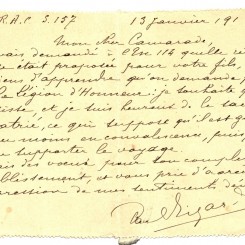 R.A.C S.157 13 Janvier 191
Mon cher Camarade,
ais demandé à l'Em 114 quelle ré
e était proposée pour votre fils,
iens d'apprendre qu'on demande
la Légion d'Honneur : je souhaite q
isse et je suis heureux de le sa
atrié, ce qui suppose qu'il est gu
u moins en convalescence, puis
e supporter le voyage.
ais des vœux pour son complet
blissement, et vous prie d'agré
pression de mes sentiments dé